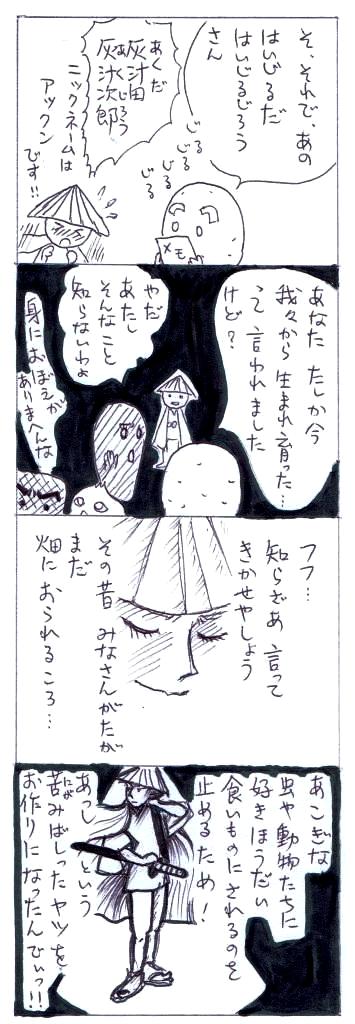 そ、それで、あの
はいじるだ
はいじるじろう
さん
じるじる
じるじる
じる
メモ
あくだ
灰汁田
あくじろう
灰汁次郎
ニックネームは
アックン
です!!
あなた たしか今
我々から 生まれ育った…
って 言われました
けど?
やだ
あたし
そんなこと
知らないわよ
身におぼえが
ありまへんな
フフ…
知らざあ 言って
きかせやしょう
その昔 みなさんがたが
まだ
畑に おられるころ…
あこぎな
虫や動物たちに
好きほうだい
食いものにされるのを
止めるため!
あっしという
苦みばしったヤツを
にが
お作りになったんでぃっ!!